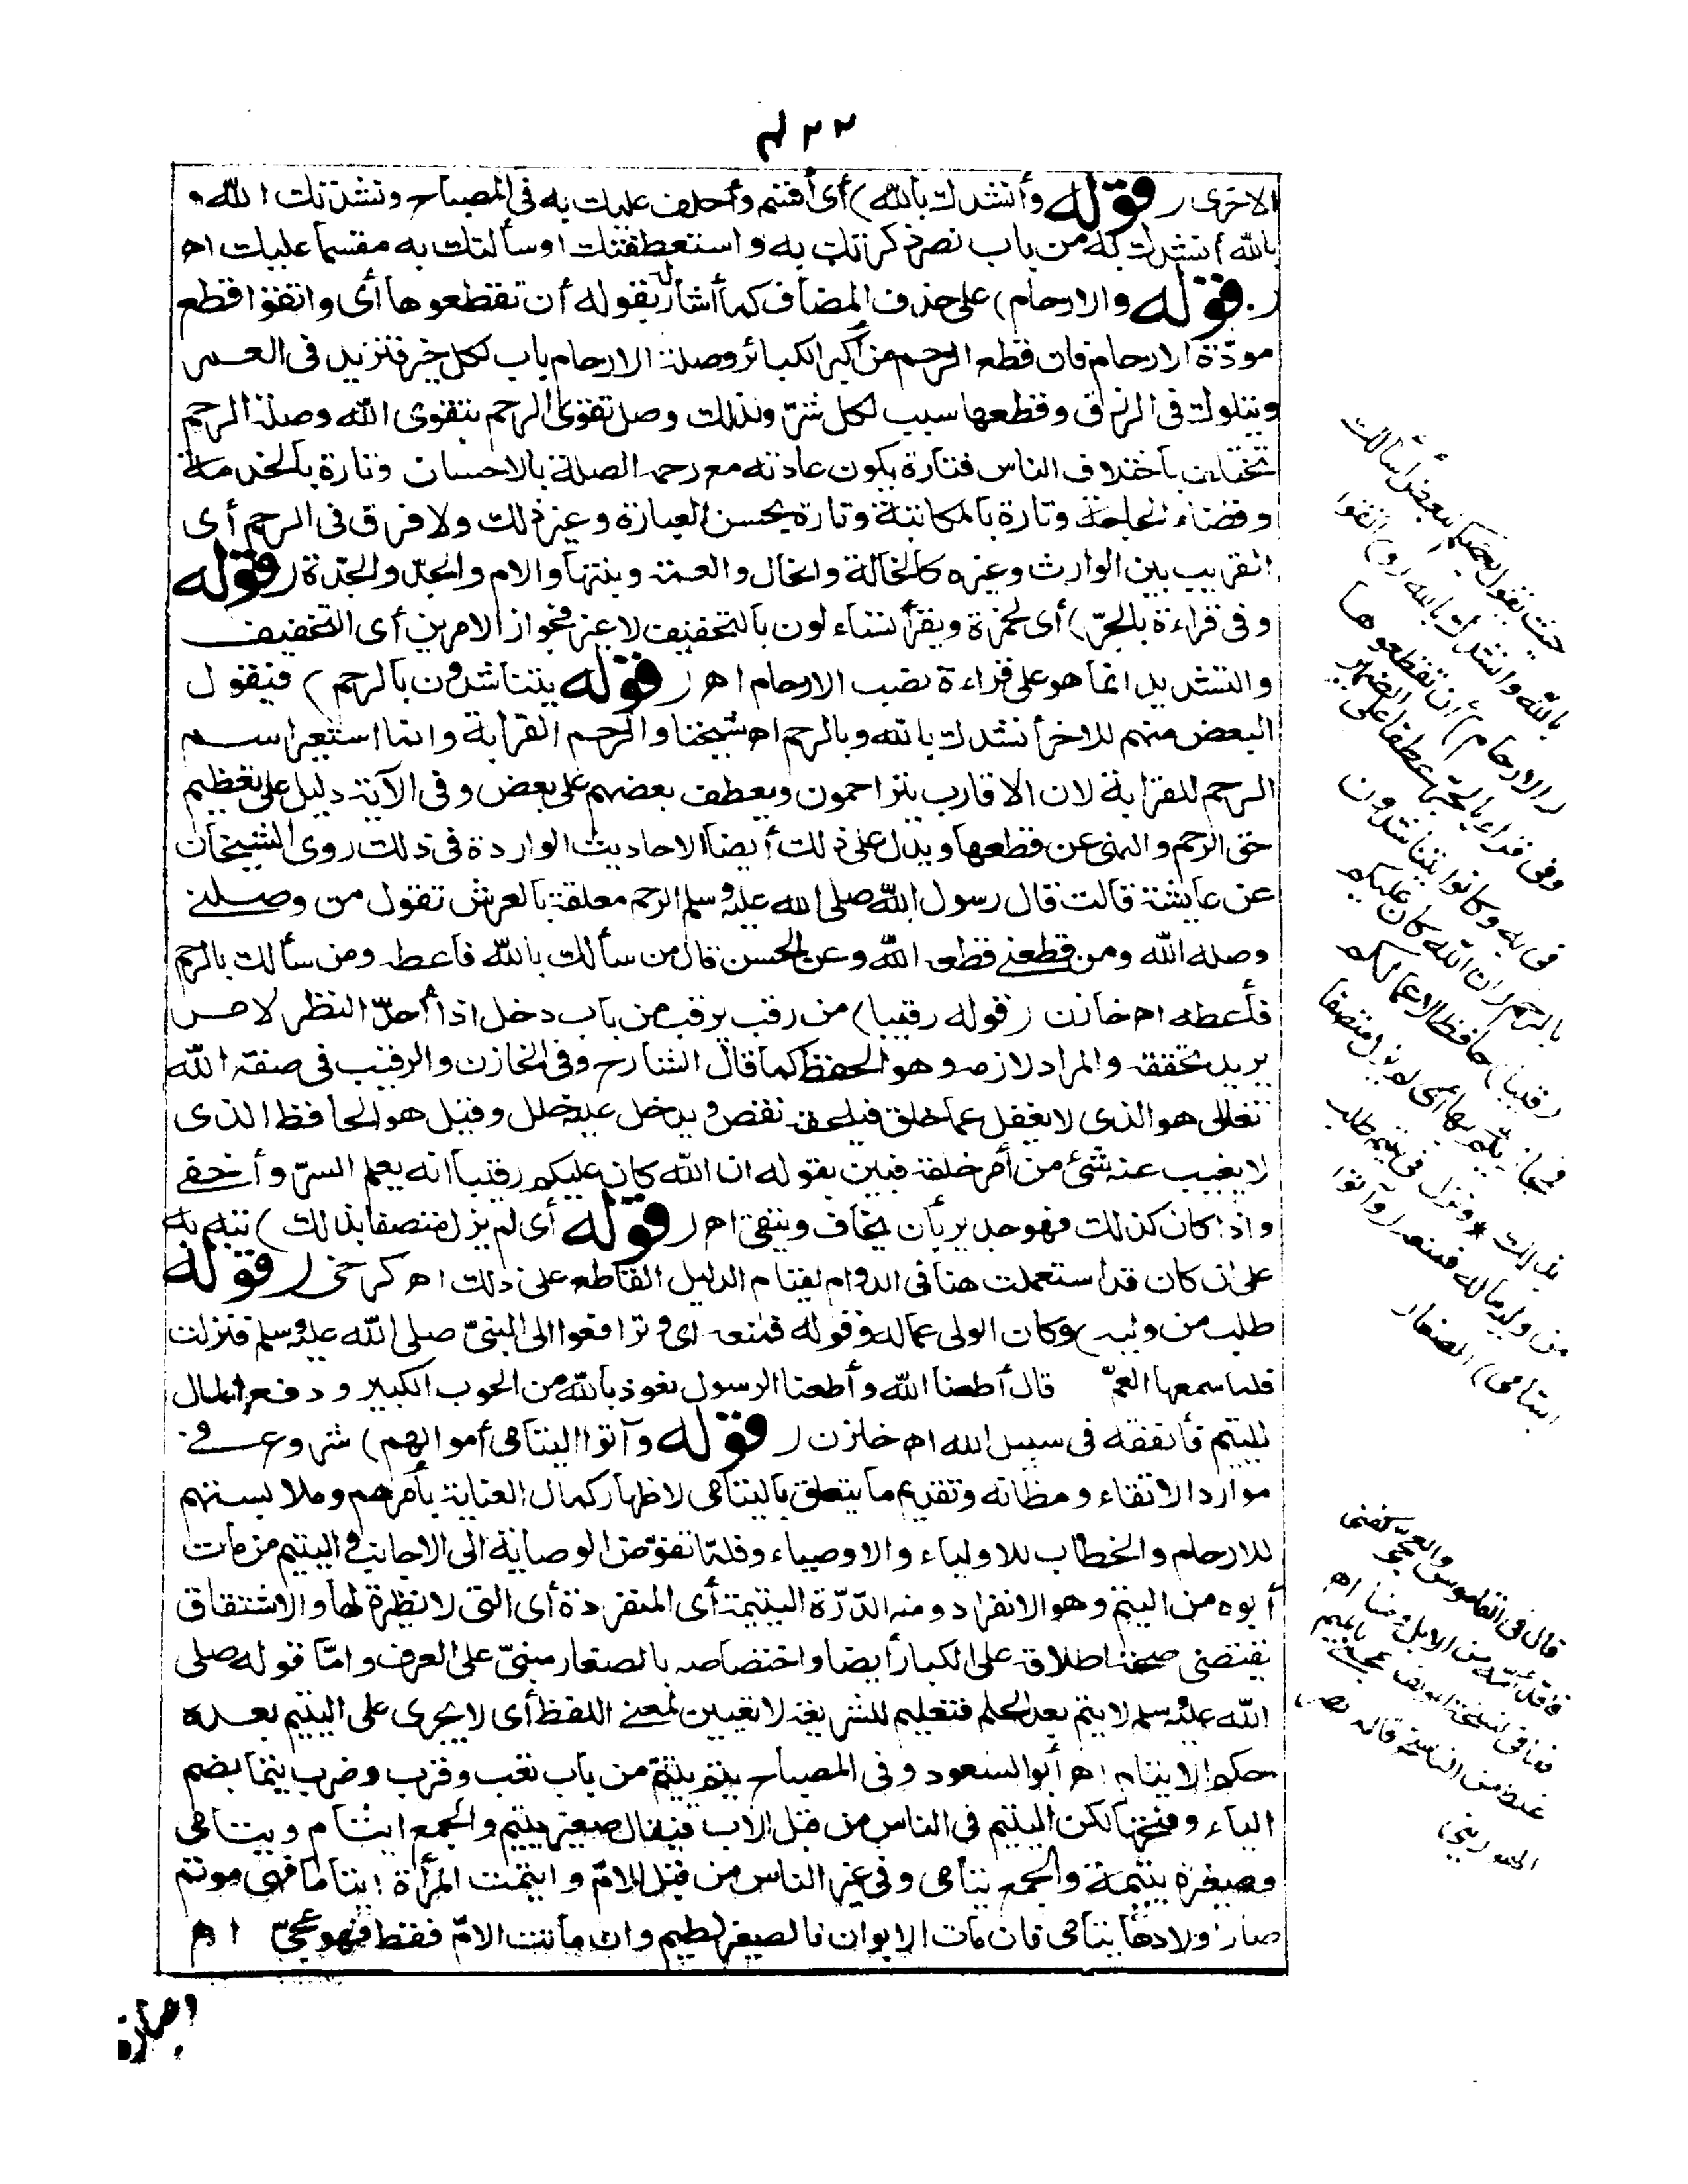 ٤٢٢
الاخرى (قوله وأنشدك بالله) أى أقسم وأحلف عليك به فى المصباح ونشدتك الله و
بالله أنشدك به من باب نصر ذكرتك به واستعطفتك او سألتك به مقسما عليك اه
(قوله والارحام) على حذف المضاف كما أشار له بقوله أن تقطعوها أى واتقوا قطع
مودّة الارحام فان قطع الرحم من أكبر الكبائر وصلة الارحام باب لكل خير فتزيد فى العمر
وتبارك فى الرزق وقطعها سبب لكل شرّ ولذلك وصل تقوى الرحم بتقوى الله وصلة الرحم
تختلف بأختلاف الناس فتارة يكون عادته مع رحمه الصلة بالاحسان وتارة بالخدمة
وقضاء الحاجة وتارة بالمكاتبة وتارة بحسن العبارة وغير ذلك ولا فرق فى الرحم أى
القريب بين الوارث وغيره كالخالة والخال والعمة وبنتها والام والجدّ والجدّة (قوله
وفى قراءة بالجرّ) أى لحمزة ويقرأ تساءلون بالتخفيف لا غير فجواز الامرين أى التخفيف
والتشديد انما هو على قراءة نصب الارحام اه (قوله يتناشدون بالرحم) فيقول
البعض منهم للاخر أنشدك بالله وبالرحم اه شيخنا والرحم القرابة وانما استعير اسم
الرحم للقرابة لان الاقارب يتراحمون ويعطف بعضهم على بعض وفى الآية دليل على تعظيم
حق الرحم والنهى عن قطعها ويدل على ذلك أيضا الاحاديث الواردة فى ذلك روى الشيخان
عن عايشة قالت قال رسول الله صلى الله عليه وسلم الرحم معلقة بالعرش تقول من وصلنى
وصله الله ومن قطعنى قطعه الله وعن الحسن قال من سألك بالله فأعطه ومن سألك بالرحم
فأعطه اه خازن (قوله رقيبا) من رقب يرقب من باب دخل اذا أحدّ النظر لامر
يريد تحققه والمراد لازمه وهو الحفظ كما قال الشارح وفى الخازن والرقيب فى صفة الله
تعالى هو الذى لا يغفل عما خلق فيلحقه نقص ويدخل عليه خلل وقيل هو الحافظ الذى
لا يغيب عنه شئ من أمر خلقه فبين بقوله ان الله كان عليكم رقيبا انه يعلم السرّ وأخفى
واذا كان كذلك فهو جدير بأن يخاف ويتقى اه (قوله أى لم يزل متصفا بذلك) نبه به
على ان كان قد استعملت هنا فى الدوام لقيام الدليل القاطع على ذلك اه كرخى (قوله
طلب من وليه) وكان الولى عما له وقوله فمنعه اى وترافعوا الى النبىّ صلى الله عليه وسلم فنزلت
فلما سمعها العمّ قال أطعنا الله وأطعنا الرسول نعوذ بالله من الحوب الكبير ودفع المال
لليتيم فأنفقه فى سبيل الله اه خازن (قوله وآتوا اليتامى أموالهم) شروع فى
موارد الاتقاء ومظانه وتقديم ما يتعلق باليتامى لاظهار كمال العناية بأمرهم وملابستهم
للارحام والخطاب للاولياء والاوصياء وقلما تفوّض الوصاية الى الاجانب واليتيم من مات
أبوه من اليتم وهو الانفراد ومنه الدّرّة اليتيمة أى المنفردة أى التى لا نظيرة لها والاشتقاق
يقتضى صحة اطلاقه على الكبار أيضا واختصاصه بالصغار مبنىّ على العرف وامّا قوله صلى
الله عليه وسلم لا يتم بعد الحلم فتعليم للشريعة لا تعيين لمعنى اللفظ أى لا يجرى على اليتيم بعده
حكم الايتام اه أبو السعود وفى المصباح يتم ييتم من باب تعب وقرب وضرب يتما بضم
الياء وفتحها لكن اليتيم فى الناس من قبل الاب فيقال صغير يتيم والجمع ايتام ويتامى
وصغيرة يتيمة والجمع يتامى وفى غير الناس من قبل الامّ وايتمت المرأة ايتاما فهى موتم
صار اولادها يتامى فان مات الابوان فالصغير لطيم وان ماتت الامّ فقط فهو عجىّ اه
حيث يقول بعضكم لبعض أسألك
بالله وانشدك بالله (و) اتقوا
(الارحام) أن تقطعوها
وفى قراءة بالجرّ عطفا على الضمير
فى به وكانوا يتناشدون
بالرحم (ان الله كان عليكم
رقيبا) حافظا لاعمالكم
فيجازيكم بها أى لم يزل متصفا
بذلك * ونزل فى يتيم طلب
من وليه ماله فمنعه (وآتوا
اليتامى) الصغار
قال فى القاموس والعجىّ كغنى
فاقد أمّه من الابل ومنا اه